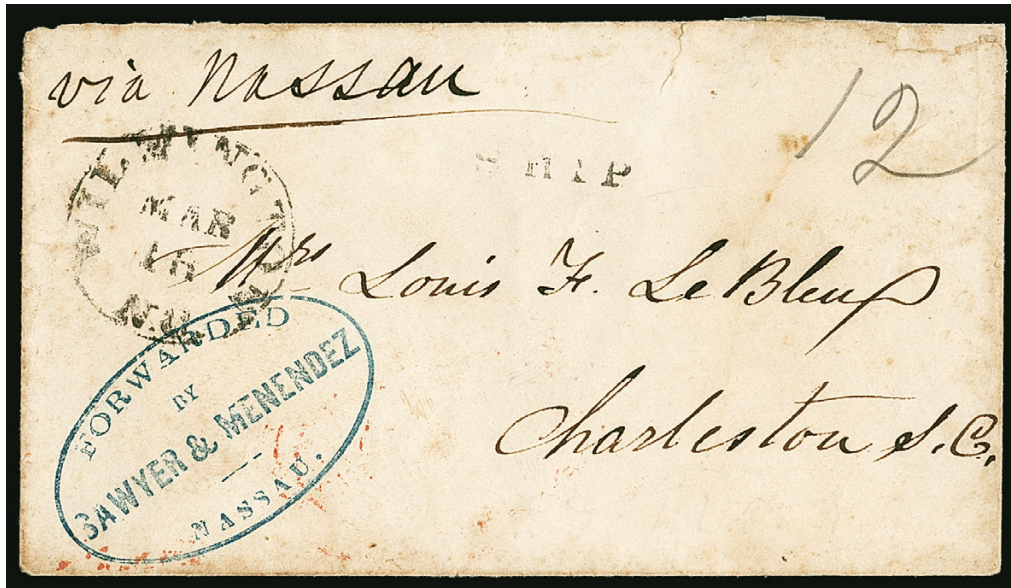 via Nassau
12
SHIP
WILMINGTON
MAR
16
N.C.
Mrs Louis F. Le Bleux
Charleston S.C.
FORWARDED
BY
SAWYER & MENENDEZ
NASSAU.